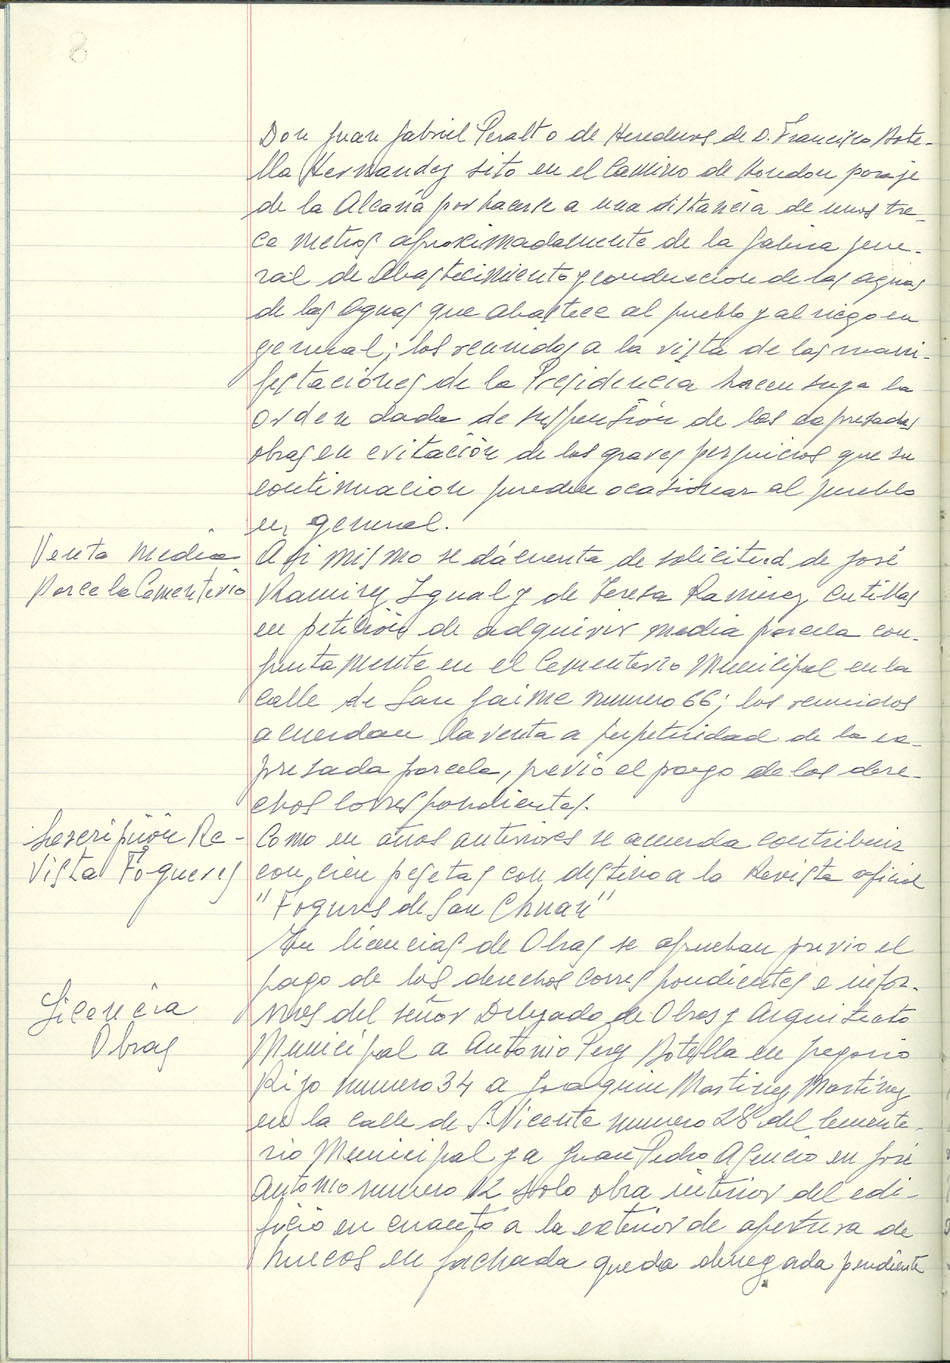 8
Don Juan Gabriel Peralto de Herederos de D. Francisco Bote-
lla Hernandez sito en el Camino de Hondon paraje
de la Alcaná por hacerse a una distancia de unos tre-
ce metros aproximadamente de la galeria gene-
ral de Abastecimiento y conduccion de las aguas
de las Aguas que abastece al pueblo y al riego en
general; los reunidos a la vista de las mani-
festaciónes de la Presidencia hacen suya la
orden dada de suspensión de las expresadas
obras en evitación de los graves perjuicios que su
continuacion pueden ocasionar al pueblo
en general.
Venta media
Parcela Cementerio
Asi mismo se dá cuenta de solicitud de José
Ramirez Igual y de Teresa Ramirez Cutillas
en petición de adquirir media parcela con-
juntamente en el Cementerio Municipal en la
calle de San Jaime numero 66; los reunidos
acuerdan la venta a perpetuidad de la ex-
presada parcela, previo el pago de los dere-
chos correspondientes.
Suscripción Re-
vista Fogueres
Como en años anteriores se acuerda contribuir
con cien pesetas con destino a la Revista oficial
"Fogures de San Chuan"
Licencia
Obras
En licencias de Obras se aprueban previo el
pago de los derechos correspondientes e infor-
mes del señor Delegado de Obras y Arquitecto
Municipal a Antonio Perez Botella en Gregorio
Rizo numero 34 a Joaquin Martinez Martinez
en la calle de S. Vicente numero 28 del Cemente-
rio Municipal y a Juan Pedro Asencio en José
Antonio numero 12 solo obra interior del edi-
ficio en cuanto a la exterior de apertura de
huecos en fachada queda denegada pendiente